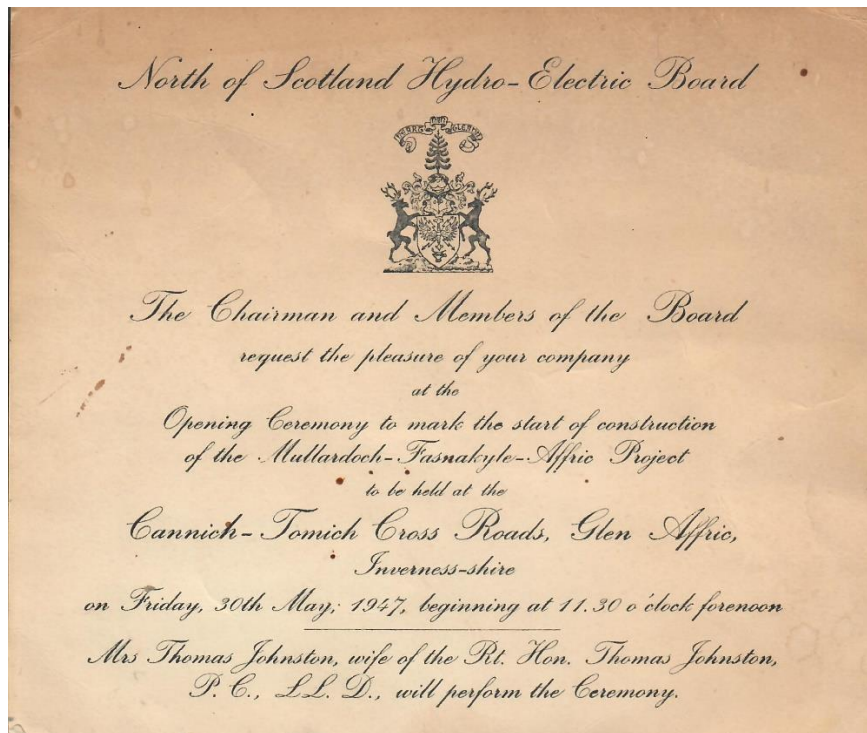 North of Scotland Hydro-Electric Board
The Chairman and Members of the Board
request the pleasure of your company
at the
Opening Ceremony to mark the start of construction
of the Mullardoch-Fasnakyle-Affric Project
to be held at the
Cannich-Tomich Cross Roads, Glen Affric,
Inverness-shire
on Friday, 30th May, 1947, beginning at 11.30 o'clock forenoon
Mrs Thomas Johnston, wife of the Rt. Hon. Thomas Johnston,
P. C., LL. D., will perform the Ceremony.